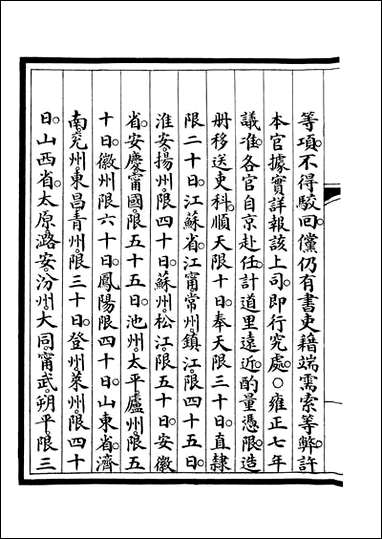 等項。不得駮回。儻仍有書吏藉端需索等弊。許
本官據實詳報該上司。即行究處。○雍正七年
議准。各官自京赴任。計道里遠近。酌量憑限。造
冊移送吏科。順天限十日。奉天限三十日。直隸
限二十日。江蘇省。江甯常州鎮江。限四十五日。
淮安。揚州。限四十日。蘇州。松江。限五十日。安徽
省。安慶甯國限五十五日。池州太平廬州。限五
十日。徽州限六十日。鳳陽限四十日。山東省。濟
南。兗州。東昌青州。限三十日。登州。萊州。限四十
日。山西省。太原。潞安。汾州。大同。甯武。朔平。限三